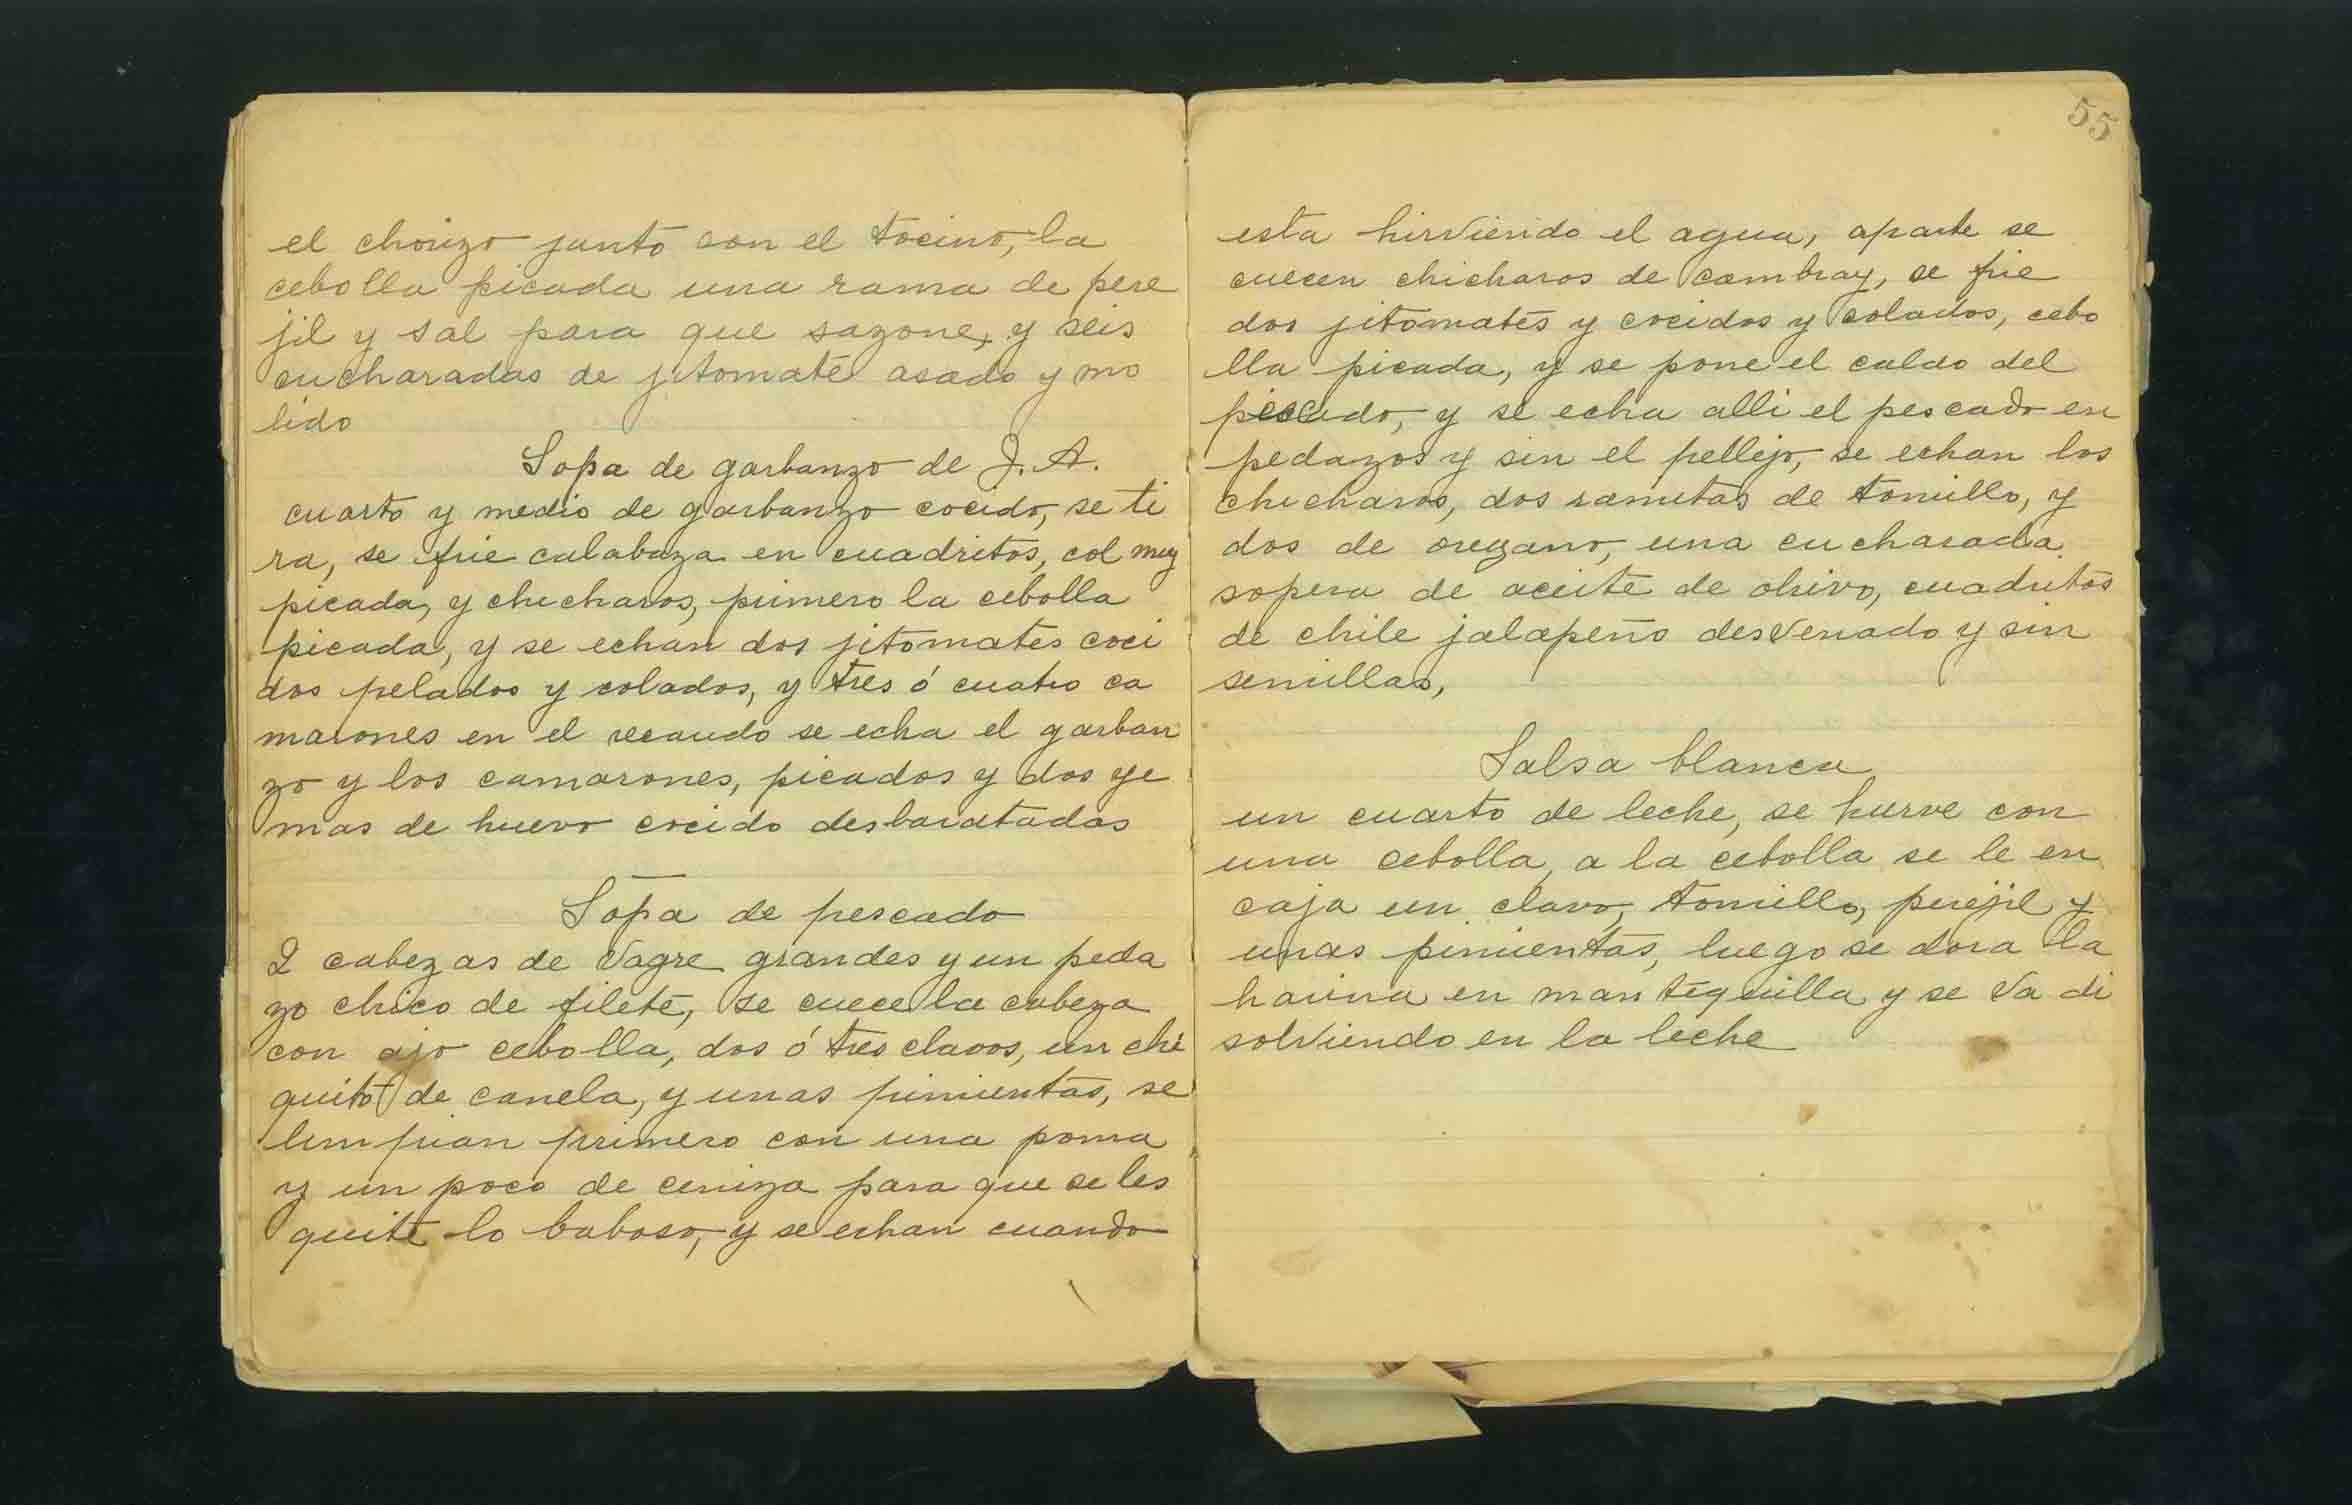 el chorizo junto con el tocino, la
cebolla picada una rama de pere
jil y sal para que sazone, y seis
cucharadas de jitomate asado y mo
lido
Sopa de garbanzo de J. A.
cuarto y medio de garbanzo cocido, se ti
ra, se frie calabaza en cuadritos, col muy
picada, y chicharos, primero la cebolla
picada, y se echan dos jitomates coci
dos pelados y colados, y tres ó cuatro ca
marones en el recaudo se echa el garban
zo y los camarones, picados y dos ye
mas de huevo cocido desbaratadas
Sopa de pescado
2 cabezas de Vagre grandes y un peda
zo chico de filete, se cuece la cabeza
con ajo cebolla, dos ó tres clavos, un chi
quito de canela, y unas pimientas, se
limpian primero con una poma
y un poco de ceniza para que se les
quite lo baboso, y se echan cuando
55
esta hirviendo el agua, aparte se
cuecen chicharos de cambray, se frie
dos jitomates y cocidos y colados, cebo
lla picada, y se pone el caldo del
pescado, y se echa alli el pescado en
pedazos y sin el pellejo, se echan los
chicharos, dos ramitas de tomillo, y
dos de oregano, una cucharada
sopera de aceite de olivo, cuadritos
de chile jalapeño desvenado y sin
semillas,
Salsa blanca
un cuarto de leche, se hierve con
una cebolla, a la cebolla se le en
caja un clavo, tomillo, perejil y
unas pimientas, luego se dora la
harina en mantequilla y se va di
solviendo en la leche